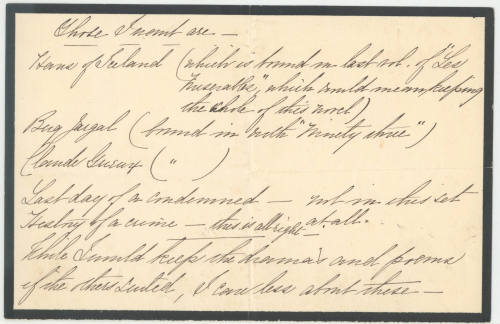 Those I want are —
Hans of Iceland (which is bound in last vol. of "Les
Miserables", which would mean keeping
the whole of this novel)
Bug Jargal (bound in with "Ninety three")
Claude Gueux ( " )
Last day of a condemned — not in this set
at all.
History of a crime — this is all right —
While I would keep the dramas and poems
if the others suited, I care less about these —